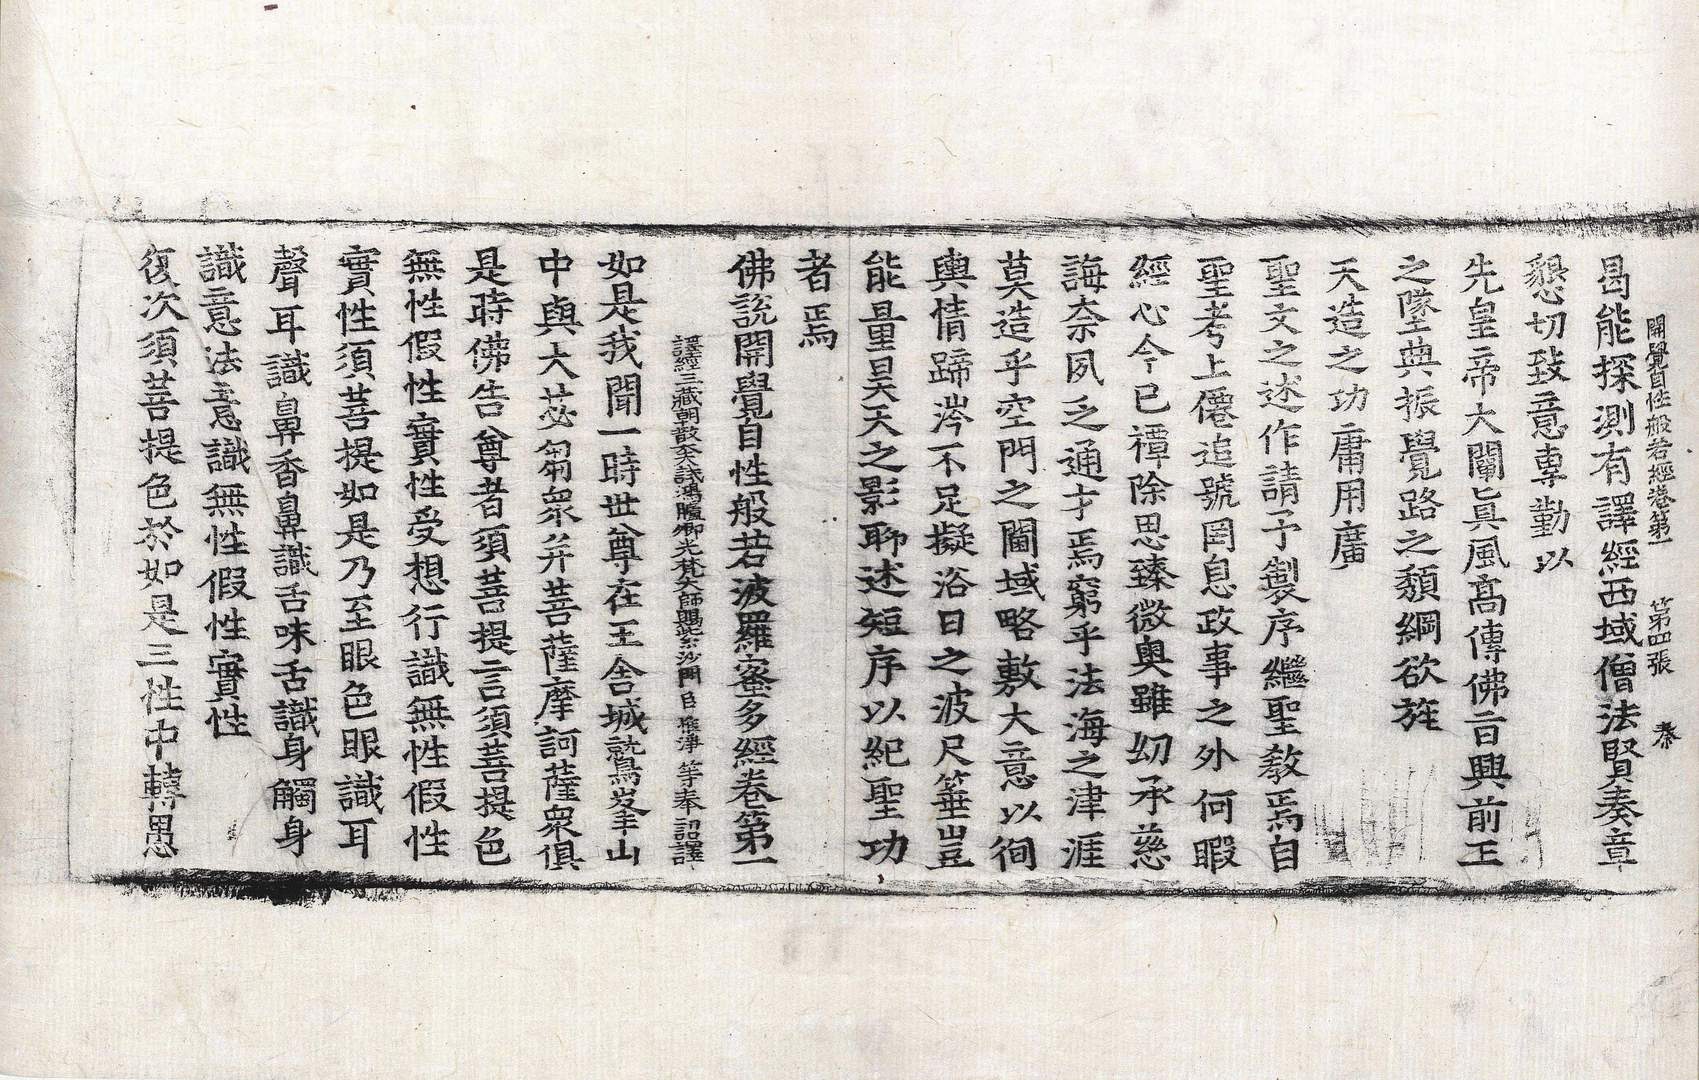 開覺自性般若經卷第一 第四張 秦
曷能探測有譯經西域僧法賢奏章
懇切致意專勤以
先皇帝大闡真風高傳佛旨興前王
之墜典振覺路之頹綱欲旌
天造之功庸用廣
聖文之述作請予製序繼聖教焉自
聖考上僊追號罔息政事之外何暇
經心今已禫除思臻微奧雖幼承慈
誨奈夙乏通才焉窮乎法海之津涯
莫造乎空門之閫域略敷大意以徇
輿情蹄涔不足擬浴日之波尺箠豈
能量昊天之影聊述短序以紀聖功
者焉
佛說開覺自性般若波羅蜜多經卷第一
譯經三藏朝散大夫試鴻臚卿光梵大師賜紫沙門臣惟淨等奉 詔譯
如是我聞一時世尊在王舍城鷲峯山
中與大苾芻衆幷菩薩摩訶薩衆俱
是時佛告尊者須菩提言須菩提色
無性假性實性受想行識無性假性
實性須菩提如是乃至眼色眼識耳
聲耳識鼻香鼻識舌味舌識身觸身
識意法意識無性假性實性
復次須菩提色於如是三性中轉愚